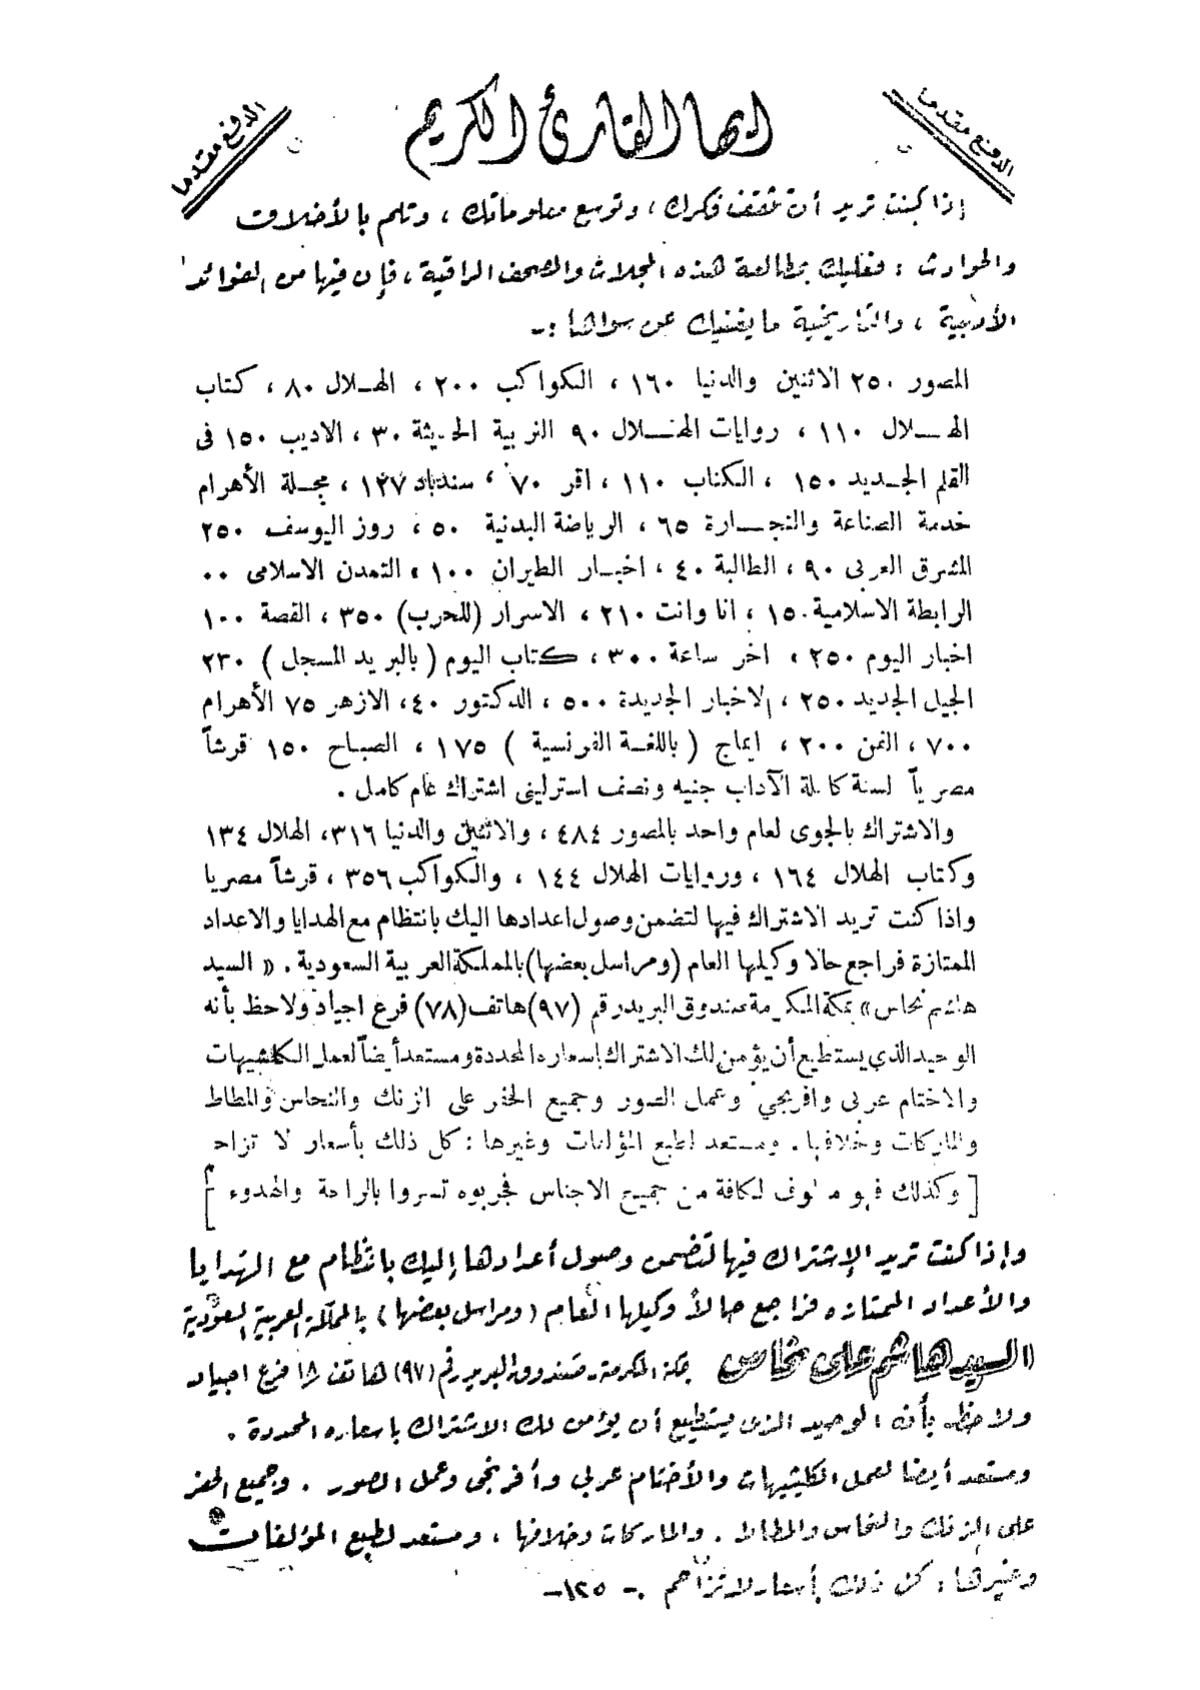 الدفع مقدما
ايها القارئ الكريم
الدفع مقدما
إذا كنت تريد أن تثقف فكرك ، وتوسع معلوماتك ، وتلم بالأخلاق
والحوادث : فعليك بمطالعة هذه المجلات والصحف الراقية ، فإن فيها من الفوائد
الأدبية ، والتاريخية ما يغنيك عن سواها :-
المصور ٢٥٠ الاثنين والدنيا ١٦٠ ، الكواكب ٢٠٠ ، الهـلال ٨٠ ، كتاب
الهـــلال ١١٠ ، روايات الهــلال ٩٠ التربية الحديثة ٣٠ ، الاديب ١٥٠ فى
القلم الجـديد ١٥٠ ، الكتاب ١١٠ ، اقر ٧٠ ، سندباد ١٢٧ ، مجـلة الأهرام
خدمة الصناعة والتجــارة ٦٥ ، الرياضة البدنية ٥٠ ، روز اليوسف ٢٥٠
الشرق العربى ٩٠ ، الطالبة ٤٠ ، اخبـار الطيران ١٠٠ ، التمدن الاسلامى ٠٠
الرابطة الاسلامية ١٥٠ ، انا وانت ٢١٠ ، الاسرار (للحرب) ٣٥٠ ، القصة ١٠٠
اخبار اليوم ٢٥٠ ، اخر ساعة ٣٠٠ ، كتاب اليوم ( بالبريد المسجل ) ٢٣٠
الجيل الجديد ٢٥٠ ، الاخبار الجديدة ٥٠٠ ، الدكتور ٤٠ ، الازهر ٧٥ الأهرام
٧٠٠ ، الفن ٢٠٠ ، ايماج ( باللغـة الفرنسية ) ١٧٥ ، الصبـاح ١٥٠ قرشاً
مصرياً لسنة كاملة الآداب جنيه ونصف استرلينى اشتراك عام كامل .
والاشتراك بالجوى لعام واحد بالمصور ٤٨٤ ، والاثنين والدنيا ٣١٦ ، الهلال ١٣٤
وكتاب الهلال ١٦٤ ، وروايات الهلال ١٤٤ ، والكواكب ٣٥٦ ، قرشاً مصريا
واذا كنت تريد الاشتراك فيها لتضمن وصول اعدادها اليك بانتظام مع الهدايا والاعداد
الممتازة فراجع حالا وكيلها العام (ومراسل بعضها) بالمملكة العربية السعودية . « السيد
هاشم نحاس » بمكة المكرمة صندوق البريد رقم (٩٧) هاتف (٧٨) فرع اجياد ولاحظ بأنه
الوحيد الذي يستطيع أن يؤمن لك الاشتراك باسعاره المحددة ومستعد أيضاً لعمل الكلشيهات
والاختام عربى وافرنجي وعمل الصور وجميع الحفر على الزنك والنحاس والمطاط
والماركات وخلافها . ومستعد لطبع المؤلفات وغيرها : كل ذلك بأسعار لا تزاحم
[ وكذلك فهو معروف لكافة من جميع الاجناس فجربوه تسروا بالراحة والهدوء ]
وإذا كنت تريد الإشتراك فيها لتضمن وصول أعدادها إليك بانتظام مع الهدايا
والأعداد الممتازه فراجع حالاً وكيلها العام (ومراسل بعضها) بالمملكة العربية السعودية
السيد هاشم على نحاس بمكة المكرمة ـ صندوق البريد رقم (٩٧) هاتف ٧٨ فرع اجياد
ولاحظ بأنه الوحيد الذى يستطيع أن يؤمن لك الاشتراك باسعاره المحددة .
ومستعد أيضا لعمل الكليشيهات والأختام عربي وأفرنجى وعمل الصور . وجميع الحفر
على الزنك والنحاس والمطاط . والماركات وخلافها ، ومستعد لطبع المؤلفات
وغيرها : كل ذلك بأسعار لا تزاحم .
-١٢٥-